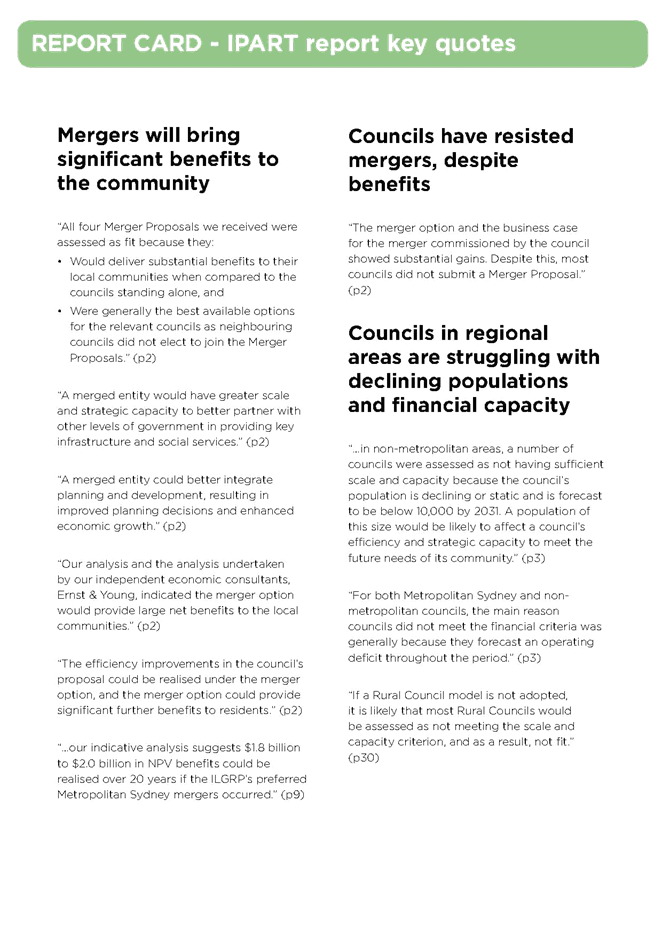 REPORT CARD - IPART report key quotes
Mergers will bring
significant benefits to
the community
“All four Merger Proposals we received were
assessed as fit because they:
• Would deliver substantial benefits to their
local communities when compared to the
councils standing alone, and
• Were generally the best available options
for the relevant councils as neighbouring
councils did not elect to join the Merger
Proposals.” (p2)
“A merged entity would have greater scale
and strategic capacity to better partner with
other levels of government in providing key
infrastructure and social services.” (p2)
“A merged entity could better integrate
planning and development, resulting in
improved planning decisions and enhanced
economic growth.” (p2)
“Our analysis and the analysis undertaken
by our independent economic consultants,
Ernst & Young, indicated the merger option
would provide large net benefits to the local
communities.” (p2)
“The efficiency improvements in the council’s
proposal could be realised under the merger
option, and the merger option could provide
significant further benefits to residents.” (p2)
“...our indicative analysis suggests $1.8 billion
to $2.0 billion in NPV benefits could be
realised over 20 years if the ILGRP’s preferred
Metropolitan Sydney mergers occurred.” (p9)
Councils have resisted
mergers, despite
benefits
“The merger option and the business case
for the merger commissioned by the council
showed substantial gains. Despite this, most
councils did not submit a Merger Proposal.”
(p2)
Councils in regional
areas are struggling with
declining populations
and financial capacity
“...in non-metropolitan areas, a number of
councils were assessed as not having sufficient
scale and capacity because the council’s
population is declining or static and is forecast
to be below 10,000 by 2031. A population of
this size would be likely to affect a council’s
efficiency and strategic capacity to meet the
future needs of its community.” (p3)
“For both Metropolitan Sydney and non-
metropolitan councils, the main reason
councils did not meet the financial criteria was
generally because they forecast an operating
deficit throughout the period.” (p3)
“If a Rural Council model is not adopted,
it is likely that most Rural Councils would
be assessed as not meeting the scale and
capacity criterion, and as a result, not fit.”
(p30)